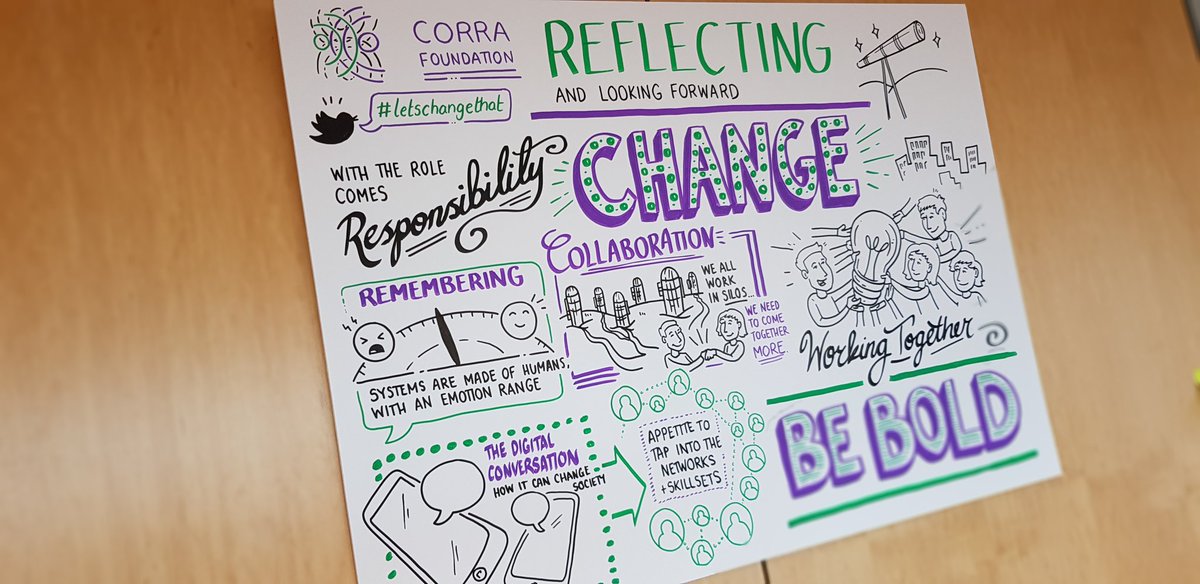 CORRA
FOUNDATION
REFLECTING
AND LOOKING FORWARD
#letschangethat
WITH THE ROLE
COMES
Responsibility
CHANGE
COLLABORATION
WE ALL
WORK
IN SILOS...
WE NEED
TO COME
TOGETHER
MORE.
REMEMBERING
SYSTEMS ARE MADE OF HUMANS,
WITH AN EMOTION RANGE
Working Together
BE BOLD
THE DIGITAL
CONVERSATION
HOW IT CAN CHANGE
SOCIETY
APPETITE TO
TAP INTO THE
NETWORKS
+ SKILLSETS